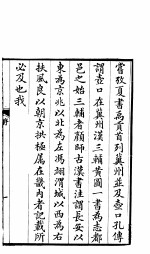 嘗攷夏書禹貢首列冀州並及壺口孔傳
謂壺口在冀州漢三輔黃圖一書為志都
邑之始三輔者顏師古漢書注謂長安以
東為京兆以北為左馮翊渭城以西為右
扶風良以朝京拱極屬在畿內者記載所
必及也我